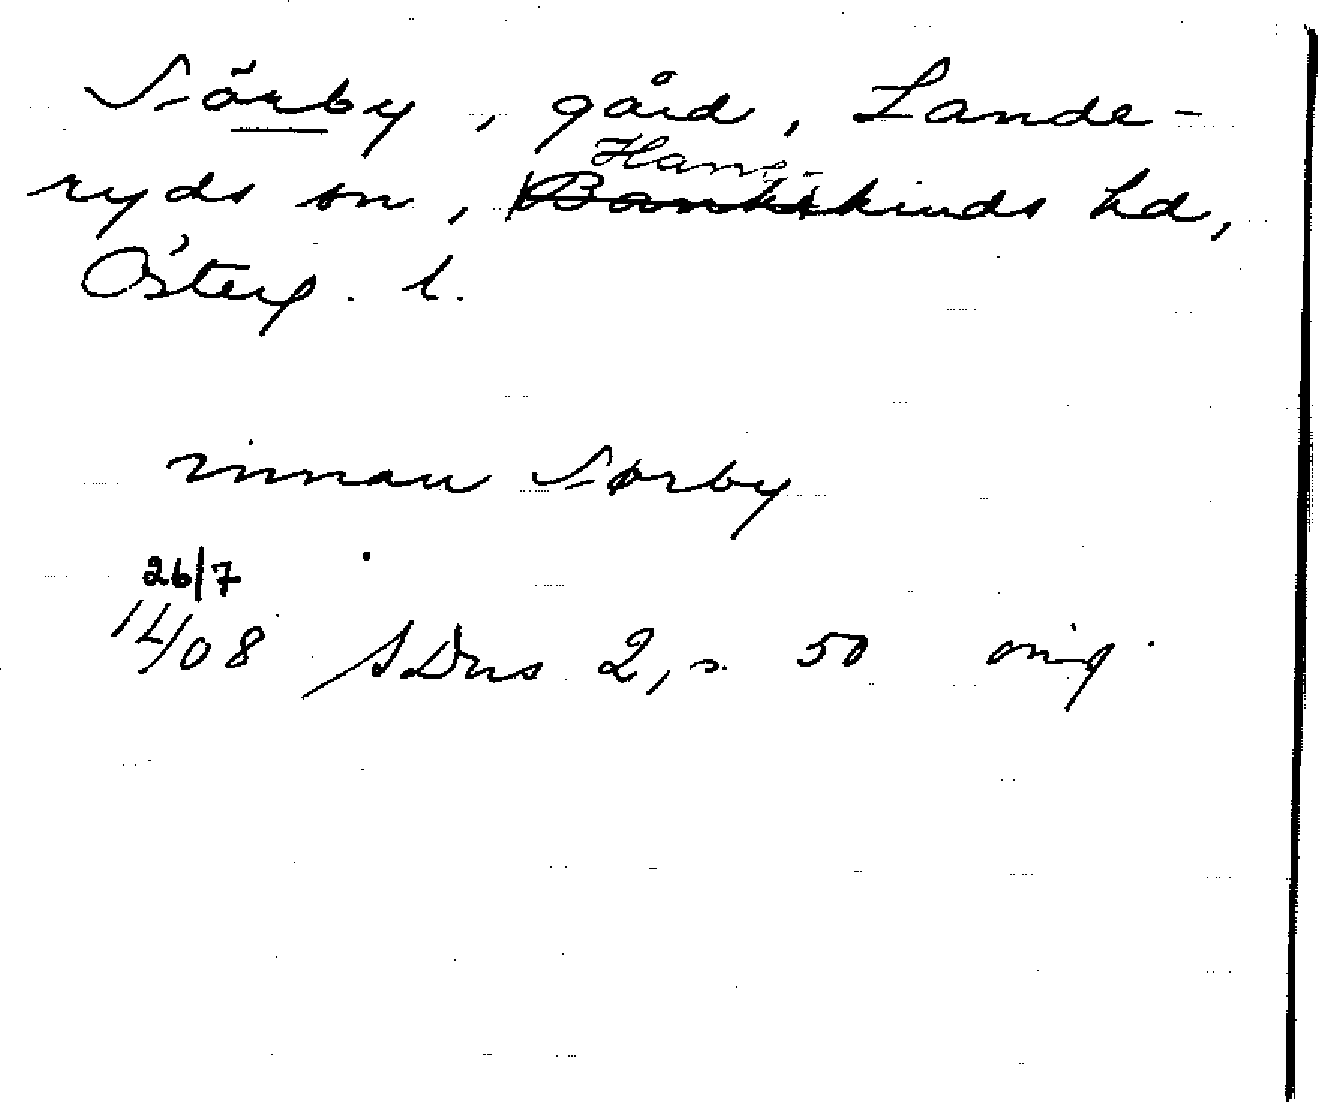 Sörby, gård, Lande-
Hane-
ryds sn, Bankekinds hd,
Österg. l.
innan Sørby
26/7
1408 SDns 2, s. 50 orig.